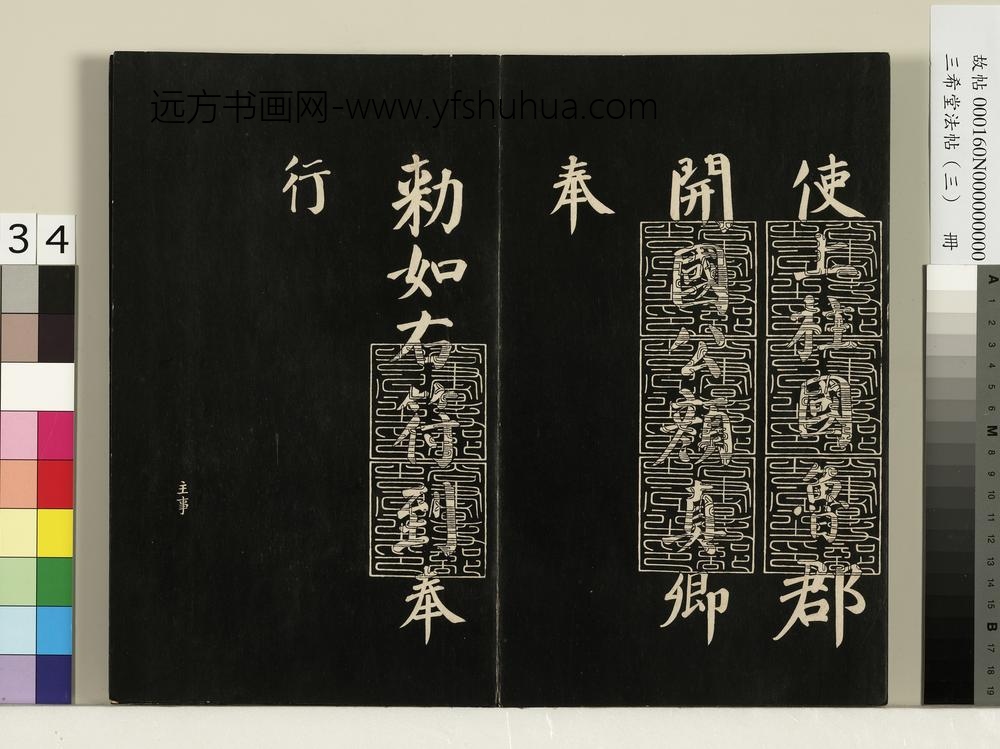 使上柱國魯郡
開國公顏真卿
奉
勑如右符到奉
行
主事
远方书画网-www.yfshuhua.com
故帖 000160N000000000
三希堂法帖(三) 冊
3 4
A 1 2 3 4 5 6 M 8 9 10 11 12 13 14 15 B 17 18 19